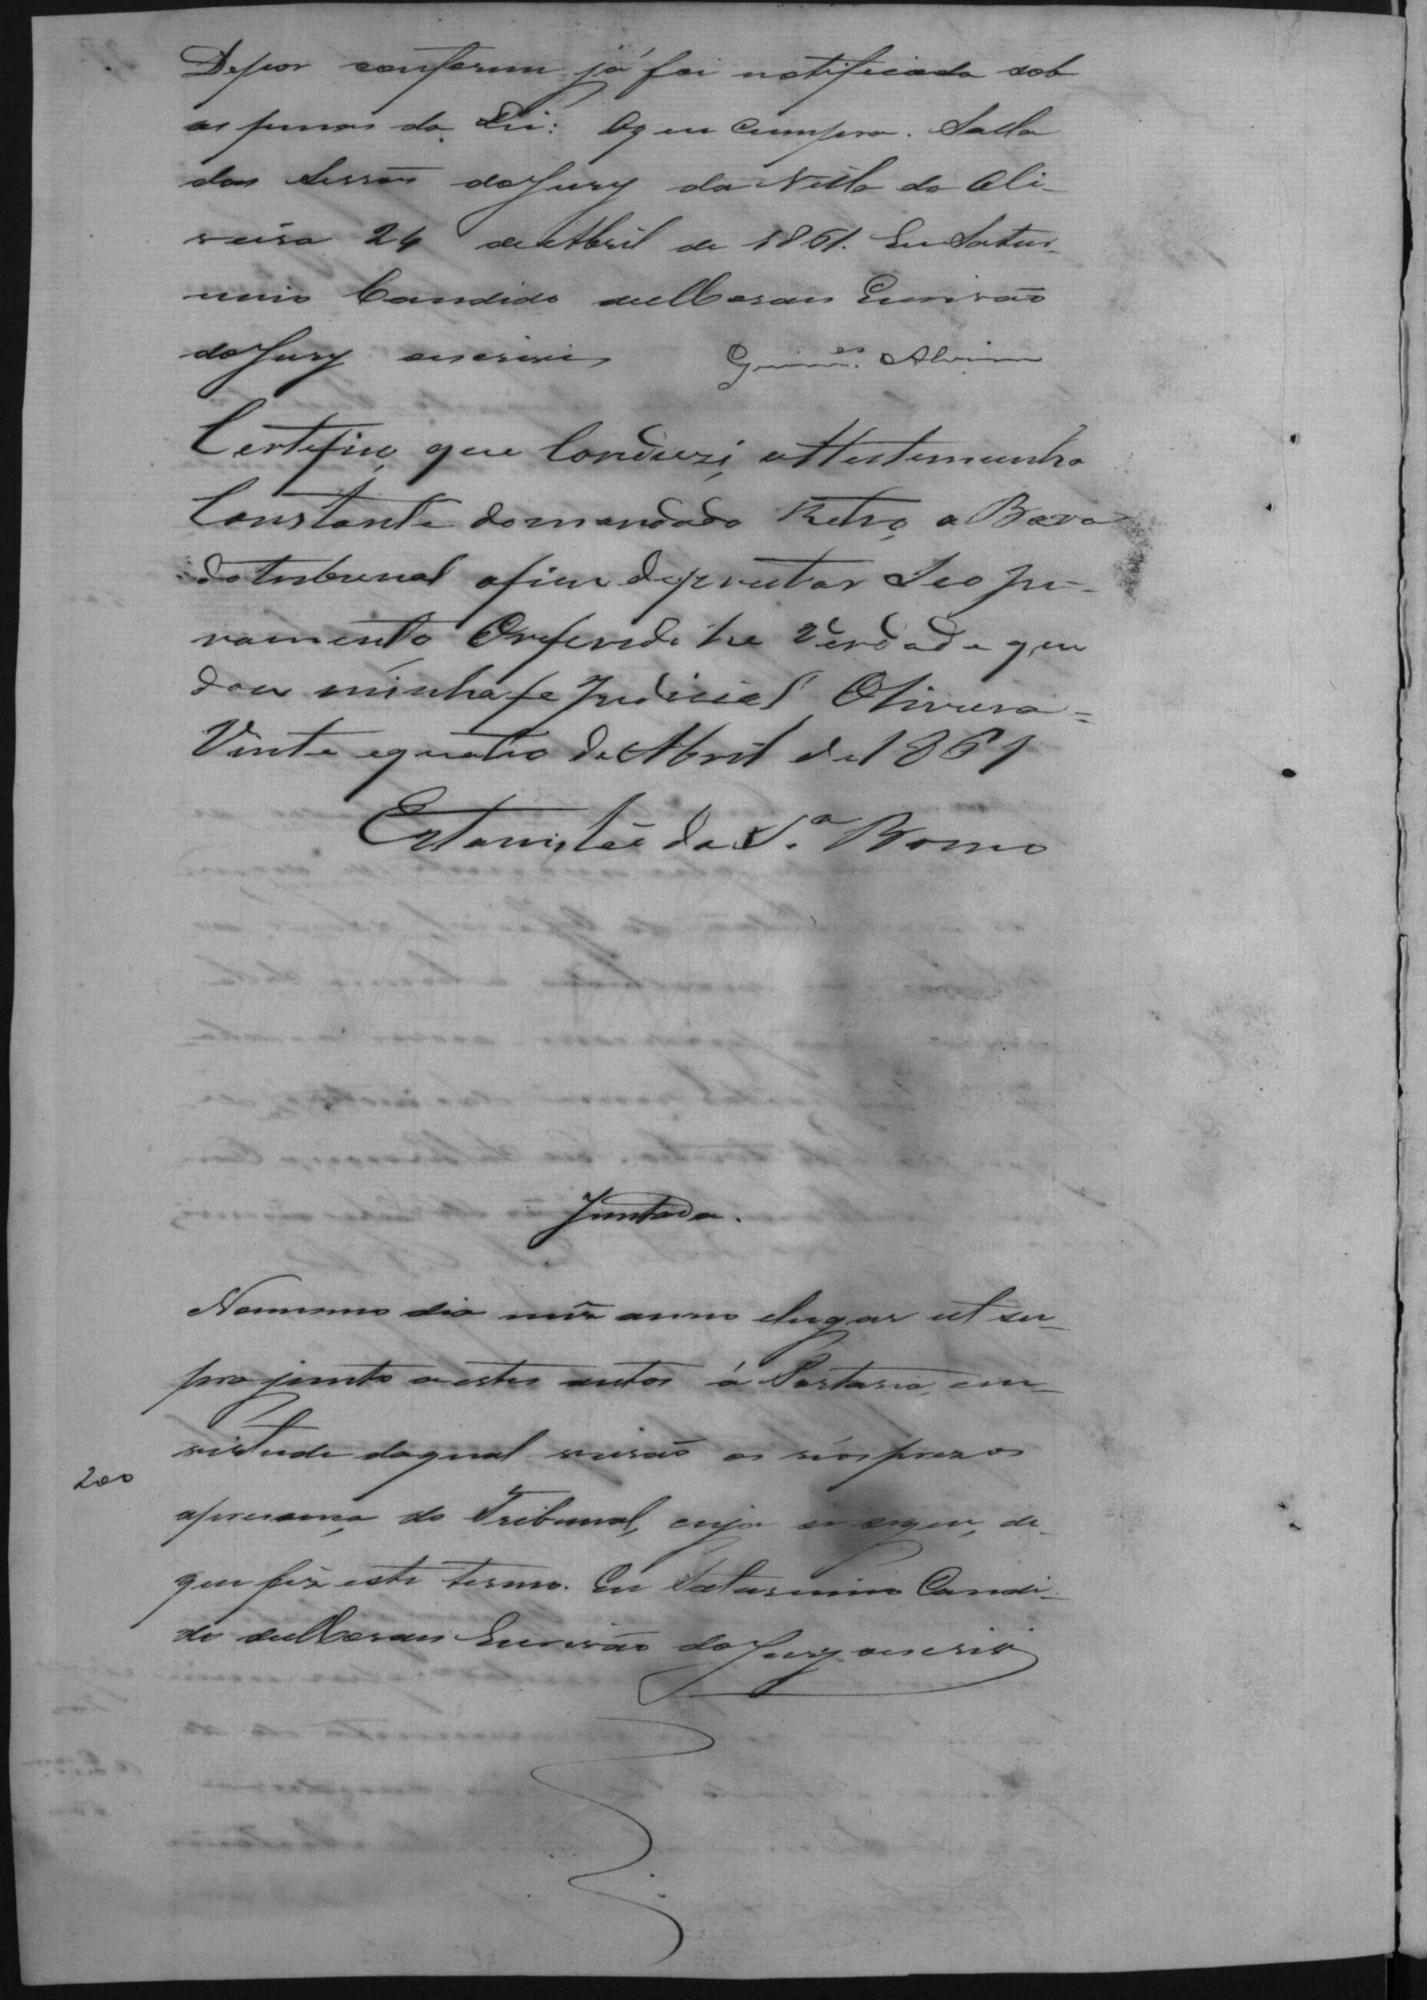 Depor conforme já foi notificada sob
as penas da Lei: O que cumpra. Salla
das Sessões do Jury da Villa da Oli-
veira 24 de Abril de 1861. Eu Satur-
nino Candido de Moraes Escrivão
do Jury escrevi Guim.es Alvim
Certifico que Conduzi a Testemunha
Constante do mandado Retro a Barra
do tribunal afim de prestar Seo ju-
ramento O referido he Verdade que
dou minha fe Judicial Oliveira =
Vinte e quatro de Abril de 1861
Estanisláo da S.a
Juntada.
No mesmo dia mez anno e lugar ut su-
pra junto a estes autos á Portaria, em
virtude da qual vierão os réos prezos
a presença do Tribunal, cuja se segue, de
200
que fiz este termo. Eu Saturnino Candi-
do de Moraes Escrivão do Jury o escrevi